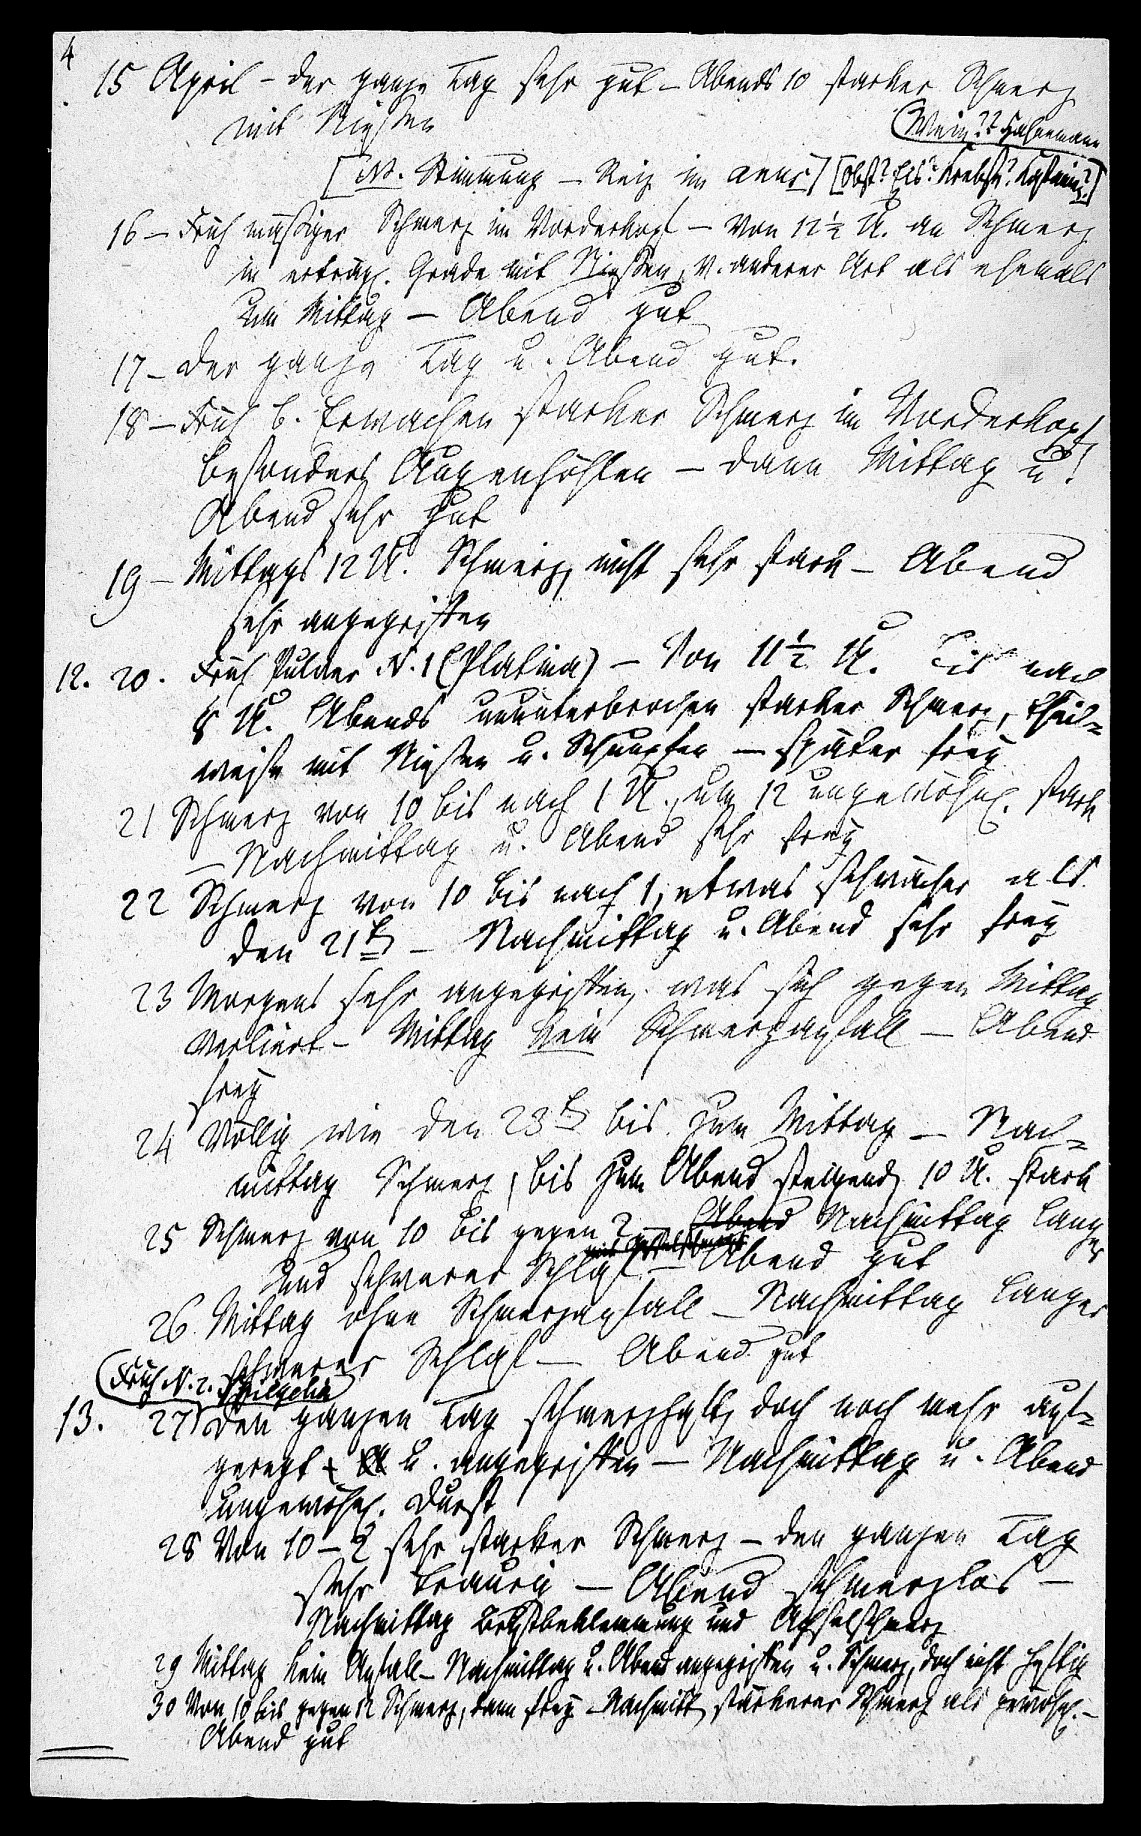 4
15 April – der ganze Tag sehr gut – Abends 10 starker Schmerz
mit Niessen
(Wein?? Hahnemann
[NB. Stimmung – Reiz im anus] [Obst? Eis? Krebse?
16 – Früh mäßiger Schmerz im Vorderkopf – Von 12 ½ U. an Schmerz
in erträgl. Grade mit Niessen, v. anderer Art als ehemals
um Mittag – Abend gut
17 – der ganze Tag u. Abend gut.
18 – Früh b. Erwachen starker Schmerz im Vorderkopf
besonders Augenhöhlen – dann Mittag u!
Abend sehr gut
19 – Mittags 12 U. Schmerz, nicht sehr stark – Abend
sehr angegriffen
12. 20. Früh Pulver N. 1 (Platina) – Von 11 ½ U. bis nach
8 U. Abends ununterbrochen starker Schmerz, theil=
weise mit Niesen u. Schnupfen – später frey
21 Schmerz von 10 bis nach 1 U., um 12 ungewöhnl. stark
– Nachmittag u. Abend sehr frey
22 Schmerz von 10 bis nach 1, etwas schwächer als
den 21t – Nachmittag u. Abend sehr frey
23 Morgens sehr angegriffen, was sich gegen Mittag
verliert – Mittag kein Schmerzanfall – Abend
frey
24 Völlig wie den 23t bis zum Mittag – Nach=
mittag Schmerz, bis zum Abend steigend, 10 U. stark
25 Schmerz von 10 bis gegen 2 – Abend Nachmittag langer
und schwerer Schlaf – Abend gut
26 Mittag ohne Schmerzanfall – Nachmittag langer
schwerer Schlaf – Abend gut
(Früh N. 2. Spigelia)
13. 27 den ganzen Tag schmerzhaft, doch noch mehr auf=
geregt u. angegriffen – Nachmittag u. Abend
ungewöhnl. Durst
28 Von 10 – 2 sehr starker Schmerz – den ganzen Tag
sehr traurig – Abend schmerzlos –
Nachmittag Brustbeklemmung und Achselschmerz
29 Mittag kein Anfall – Nachmittag u. Abend angegriffen u. Schmerz, doch nicht heftig
30 Von 10 bis gegen 12 Schmerz, dann frey – Nachmitt stärkerer Schmerz als gewöhnl. –
Abend gut